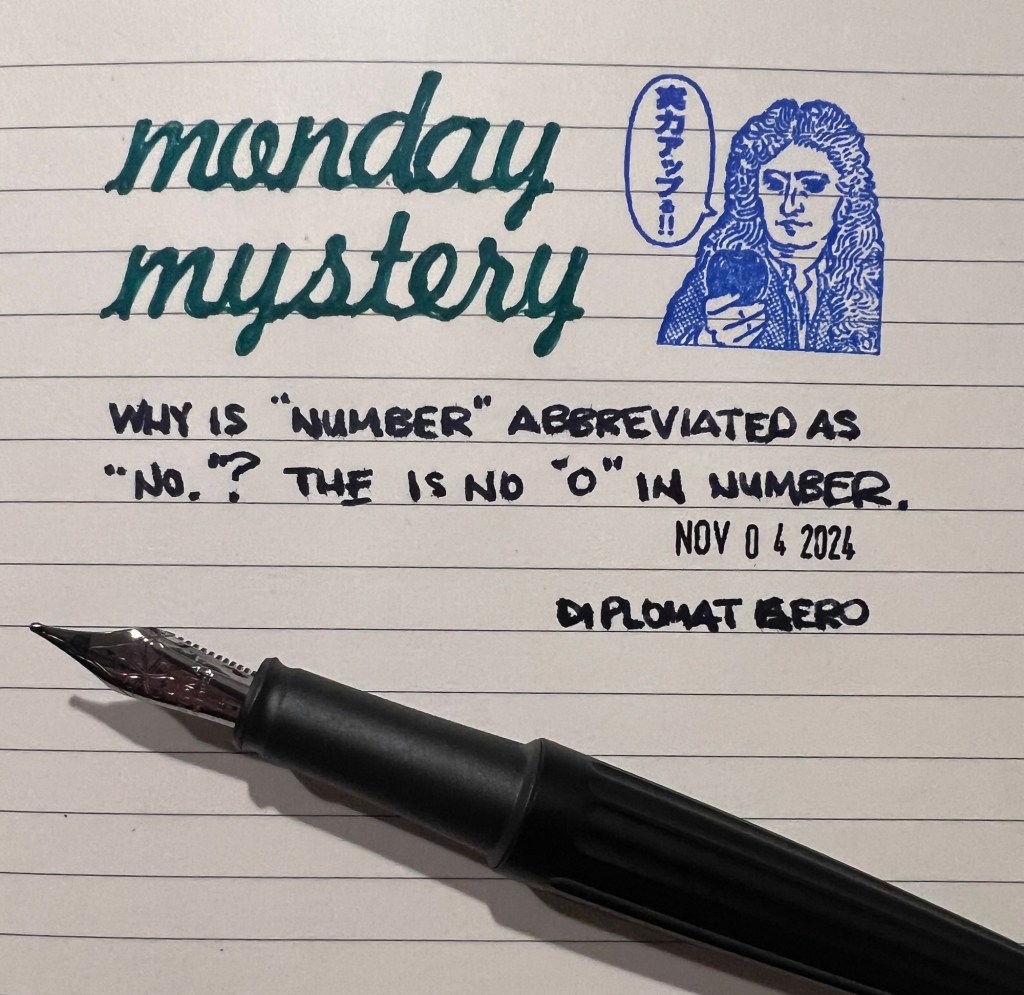 monday
mystery
実力アップ!!
WHY IS "NUMBER" ABBREVIATED AS
"NO."? THE IS NO "O" IN NUMBER.
NOV 04 2024
DIPLOMAT AERO